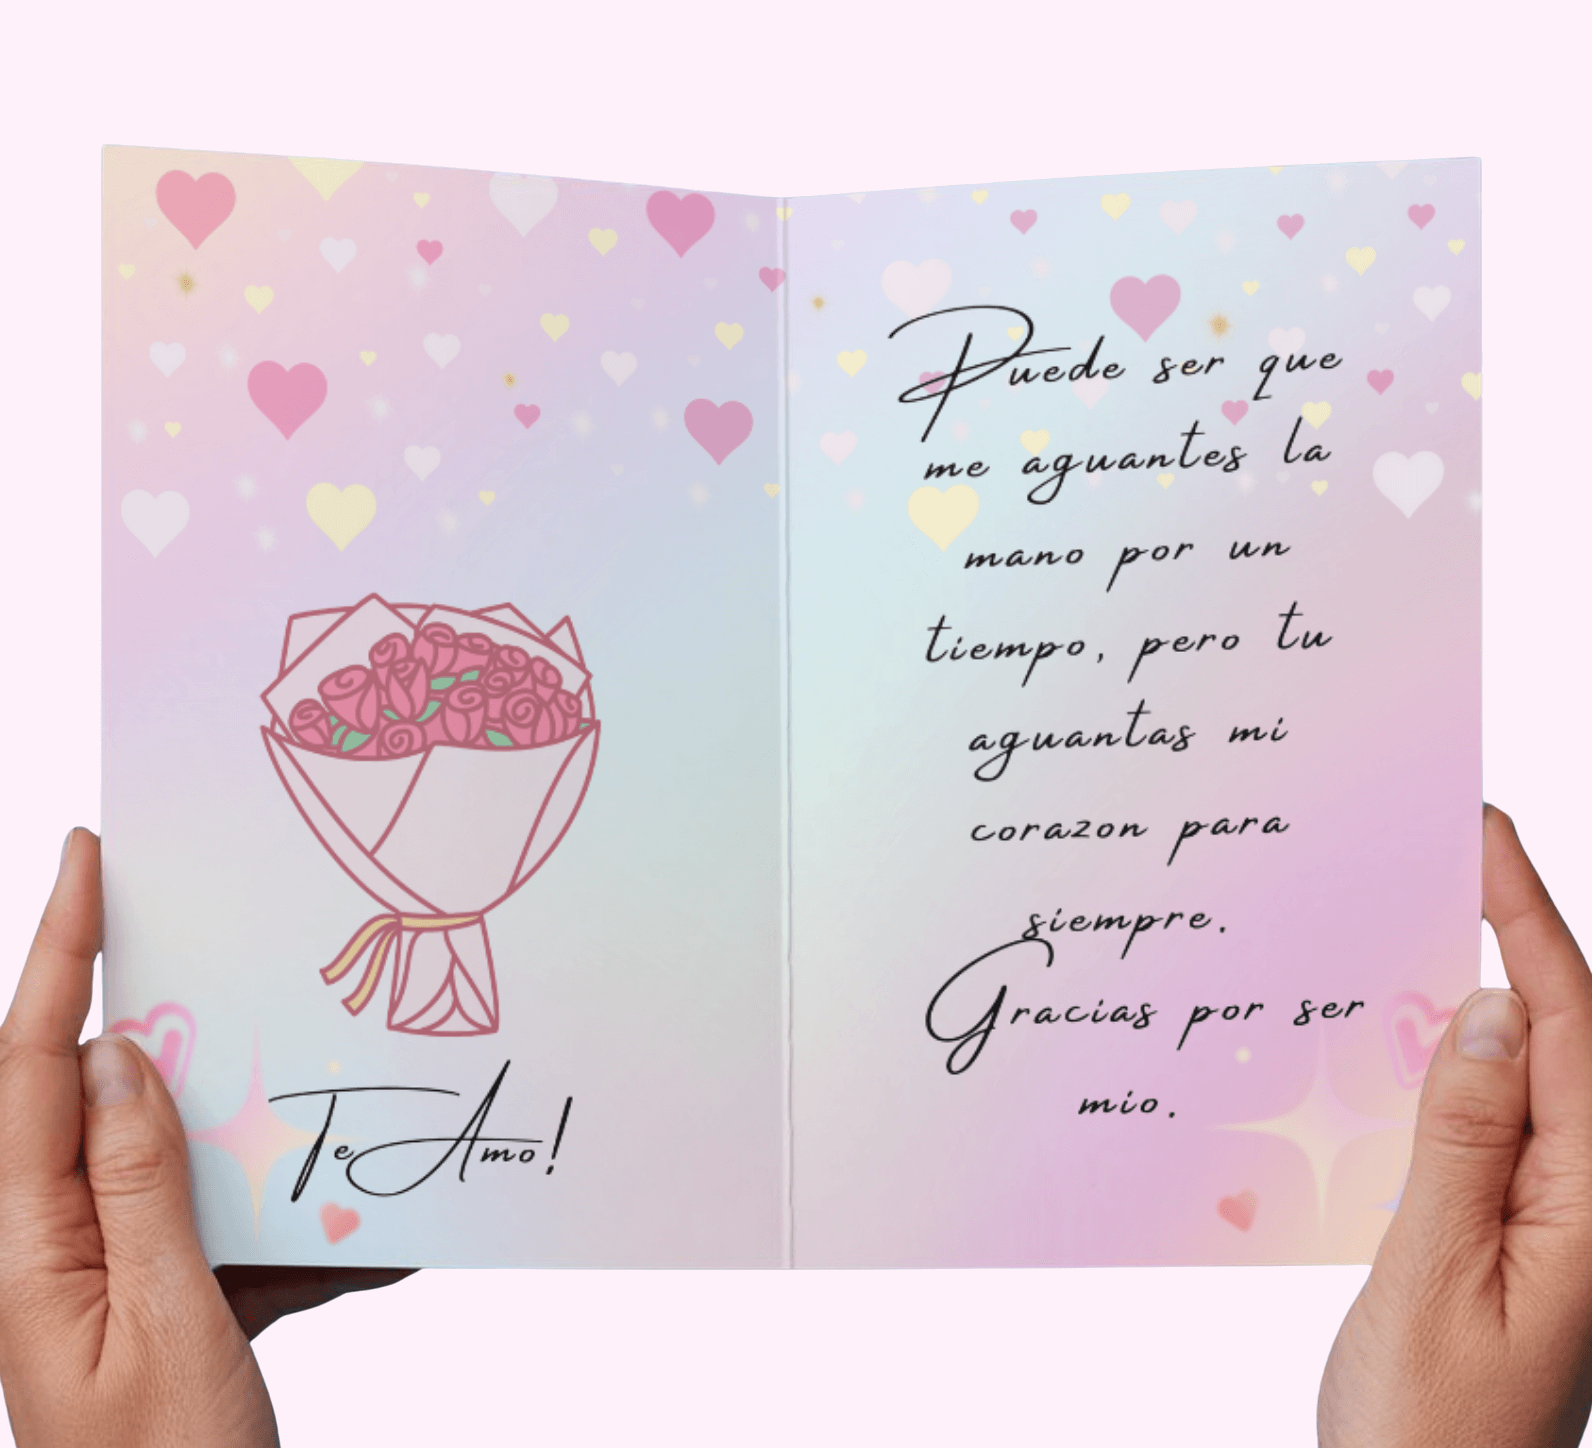 Te Amo!
Puede ser que
me aguantes la
mano por un
tiempo, pero tu
aguantas mi
corazon para
siempre.
Gracias por ser
mio.